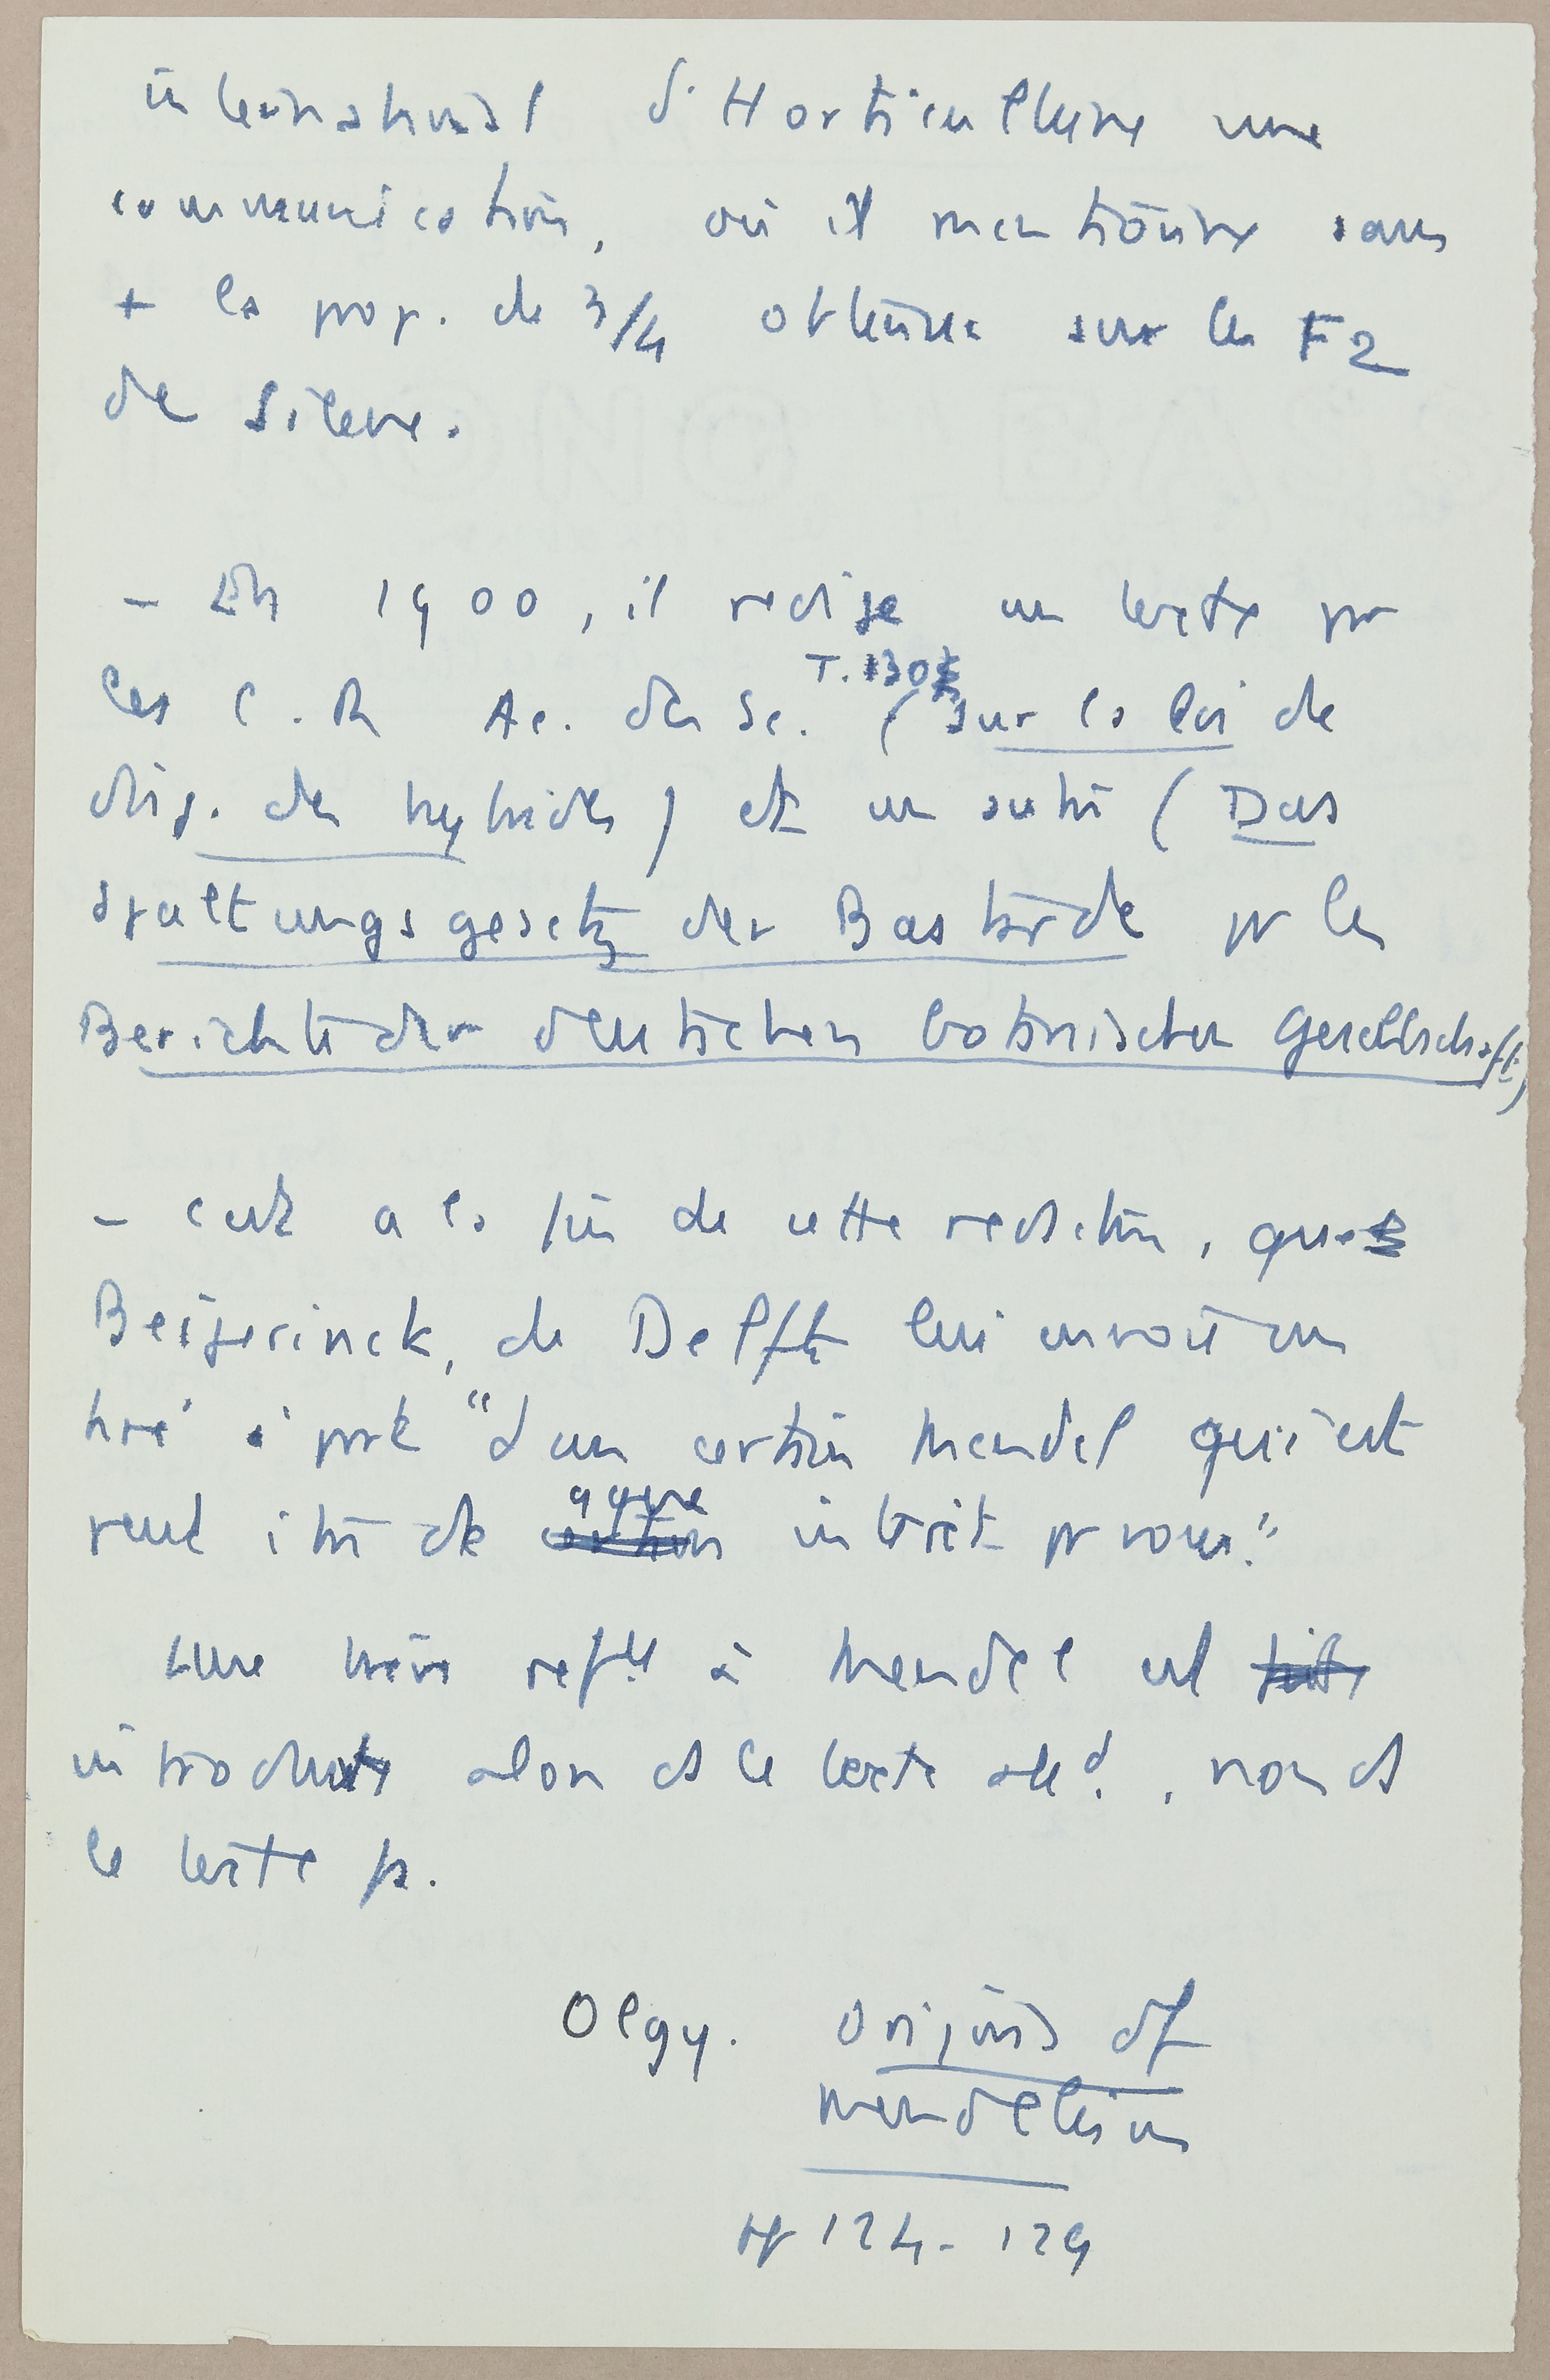 international d'Horticulture une
communication, où il mentionne sans
+ la prop. de 3/4 obtenue sur les F2
de Silene.
- En 1900, il redige un texte pr
les C.R Ac. des Sc. (sur la loi de
T. 130
disj. des hybrides) et un autre (Das
Spaltungsgesetz der Bastarde pr les
Berichte der deutschen botanischen Gesellschaft)
- c'est a la fin de cette redaction, que
Beijerinck, de Delft lui envoie un
tiré à part "d'un certain Mendel qui est
peut être de qque intérêt pr vous."
Une brève refce à Mendel est
introduite alors ds le texte alld, non ds
le texte fr.
Olgy. Origins of
Mendelism
pp 124-129